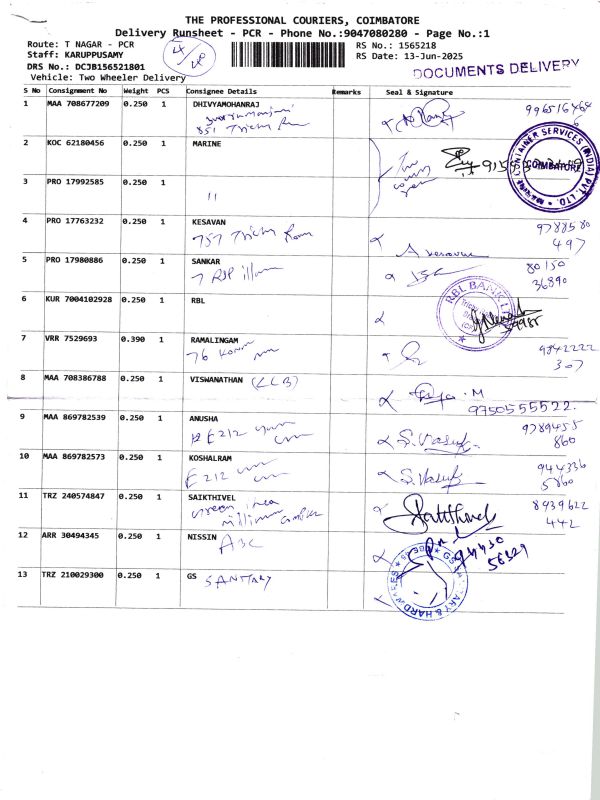 THE PROFESSIONAL COURIERS, COIMBATORE
Delivery Runsheet - PCR - Phone No.:9047080280 - Page No.:1
Route: T NAGAR - PCR
Staff: KARUPPUSAMY
DRS No.: DCJB156521801
Vehicle: Two Wheeler Delivery
4/48
RS No.: 1565218
RS Date: 13-Jun-2025
DOCUMENTS DELIVERY
S No Consignment No Weight PCS Consignee Details Remarks Seal & Signature
1 MAA 708677209 0.250 1 DHIVYAMOHANRAJ
851 Trichy 996516464
6
2 KOC 62180456 0.250 1 MARINE
CONTAINER SERVICES (INDIA) PVT. LTD.
COIMBATORE
3 PRO 17992585 0.250 1
"
4 PRO 17763232 0.250 1 KESAVAN 9788580
757 Trichy Road 497
5 PRO 17980886 0.250 1 SANKAR 80150
7 36890
6 KUR 7004102928 0.250 1 RBL RBL BANK
7 VRR 7529693 0.390 1 RAMALINGAM 9842222
76 307
8 MAA 708386788 0.250 1 VISWANATHAN (LLB)
M
9750555522.
9 MAA 869782539 0.250 1 ANUSHA 9789455
E212 S. Vasuk 860
10 MAA 869782573 0.250 1 KOSHALRAM 944336
E212 S. Vasuk 5860
11 TRZ 240574847 0.250 1 SAIKTHIVEL 8939622
Green 442
millinium
12 ARR 30494345 0.250 1 NISSIN
ABC 94430
56329
13 TRZ 210029300 0.250 1 GS SANITARY
GS SANITARY & HARDWARES